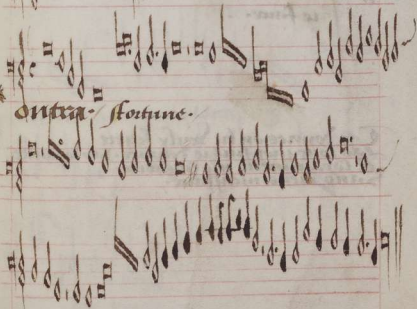 ontra· ffortune·